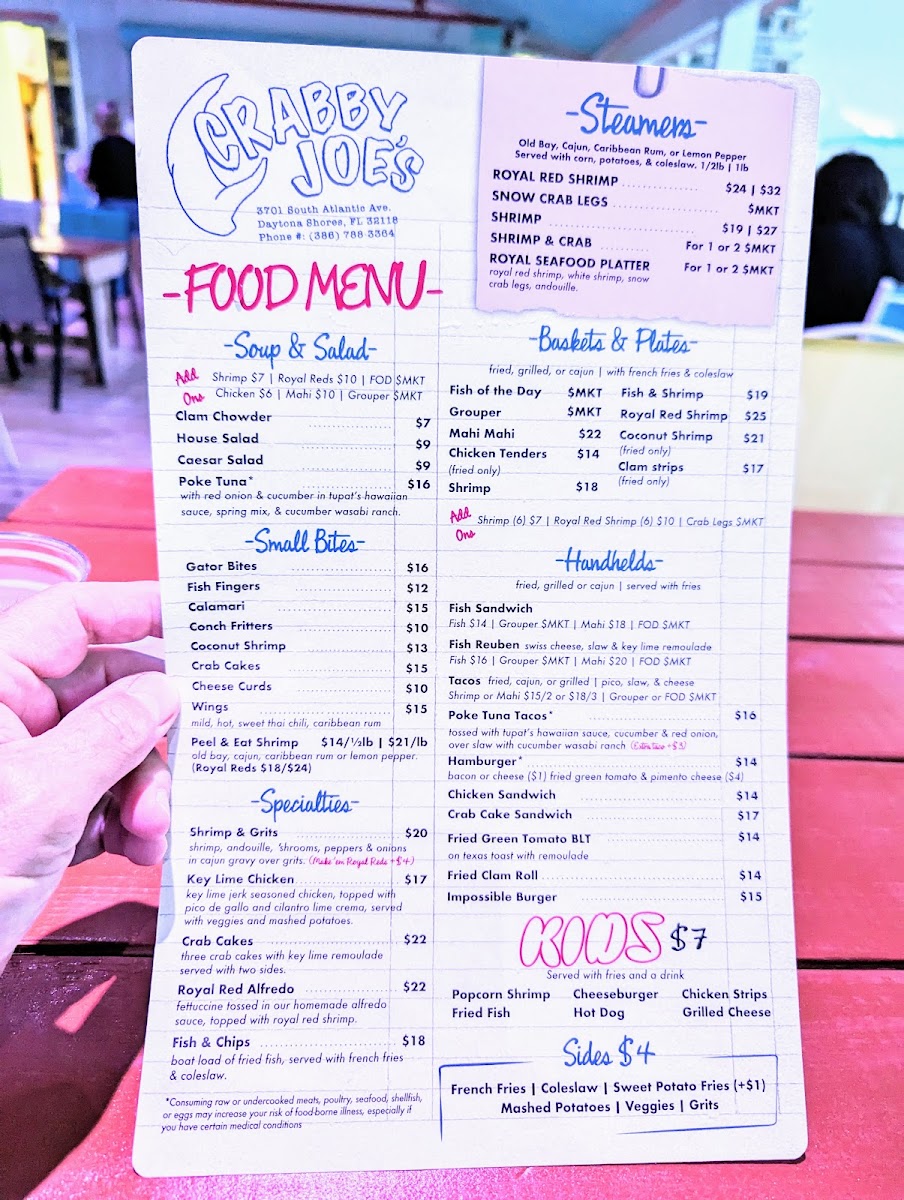 CRABBY
JOE'S
3701 South Atlantic Ave.
Daytona Shores, FL 32118
Phone #: (386) 788-3364
-FOOD MENU-
-Soup & Salad-
Add Ons
Shrimp $7 | Royal Reds $10 | FOD $MKT
Chicken $6 | Mahi $10 | Grouper $MKT
Clam Chowder $7
House Salad $9
Caesar Salad $9
Poke Tuna* $16
with red onion & cucumber in tupat's hawaiian
sauce, spring mix, & cucumber wasabi ranch.
-Small Bites-
Gator Bites $16
Fish Fingers $12
Calamari $15
Conch Fritters $10
Coconut Shrimp $13
Crab Cakes $15
Cheese Curds $10
Wings $15
mild, hot, sweet thai chili, caribbean rum
Peel & Eat Shrimp $14/½lb | $21/lb
old bay, cajun, caribbean rum or lemon pepper.
(Royal Reds $18/$24)
-Specialties-
Shrimp & Grits $20
shrimp, andouille, 'shrooms, peppers & onions
in cajun gravy over grits. (Make 'em Royal Reds +$4)
Key Lime Chicken $17
key lime jerk seasoned chicken, topped with
pico de gallo and cilantro lime crema, served
with veggies and mashed potatoes.
Crab Cakes $22
three crab cakes with key lime remoulade
served with two sides.
Royal Red Alfredo $22
fettuccine tossed in our homemade alfredo
sauce, topped with royal red shrimp.
Fish & Chips $18
boat load of fried fish, served with french fries
& coleslaw.
*Consuming raw or undercooked meats, poultry, seafood, shellfish,
or eggs may increase your risk of food-borne illness, especially if
you have certain medical conditions
-Steamers-
Old Bay, Cajun, Caribbean Rum, or Lemon Pepper
Served with corn, potatoes, & coleslaw. 1/2lb | 1lb
ROYAL RED SHRIMP $24 | $32
SNOW CRAB LEGS $MKT
SHRIMP $19 | $27
SHRIMP & CRAB For 1 or 2 $MKT
ROYAL SEAFOOD PLATTER For 1 or 2 $MKT
royal red shrimp, white shrimp, snow
crab legs, andouille.
-Baskets & Plates-
fried, grilled, or cajun | with french fries & coleslaw
Fish of the Day $MKT
Grouper $MKT
Mahi Mahi $22
Chicken Tenders $14
(fried only)
Shrimp $18
Fish & Shrimp $19
Royal Red Shrimp $25
Coconut Shrimp $21
(fried only)
Clam strips $17
(fried only)
Add Ons
Shrimp (6) $7 | Royal Red Shrimp (6) $10 | Crab Legs $MKT
-Handhelds-
fried, grilled or cajun | served with fries
Fish Sandwich
Fish $14 | Grouper $MKT | Mahi $18 | FOD $MKT
Fish Reuben swiss cheese, slaw & key lime remoulade
Fish $16 | Grouper $MKT | Mahi $20 | FOD $MKT
Tacos fried, cajun, or grilled | pico, slaw, & cheese
Shrimp or Mahi $15/2 or $18/3 | Grouper or FOD $MKT
Poke Tuna Tacos* $16
tossed with tupat's hawaiian sauce, cucumber & red onion,
over slaw with cucumber wasabi ranch (Extra taco +$3)
Hamburger* $14
bacon or cheese ($1) fried green tomato & pimento cheese ($4)
Chicken Sandwich $14
Crab Cake Sandwich $17
Fried Green Tomato BLT $14
on texas toast with remoulade
Fried Clam Roll $14
Impossible Burger $15
KIDS $7
Served with fries and a drink
Popcorn Shrimp Cheeseburger Chicken Strips
Fried Fish Hot Dog Grilled Cheese
Sides $4
French Fries | Coleslaw | Sweet Potato Fries (+$1)
Mashed Potatoes | Veggies | Grits